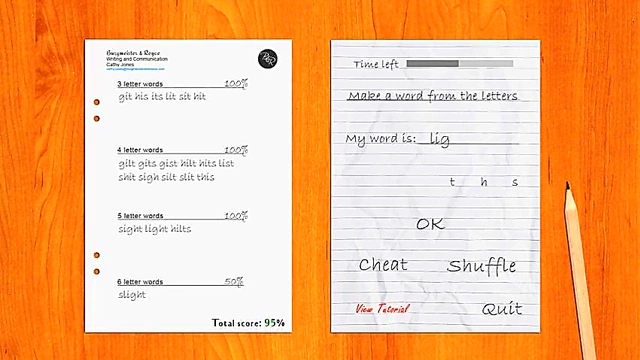 Burgmeister & Royce
Writing and Communication
Cathy Jones
3 letter words 100%
git his its lit sit hit
4 letter words 100%
gilt gits gist hilt hits list
shit sigh silt slit this
5 letter words 100%
sight light hilts
6 letter words 50%
slight
Total score: 95%
Time left
Make a word from the letters
My word is: lig
t h s
OK
Cheat Shuffle
View Tutorial Quit